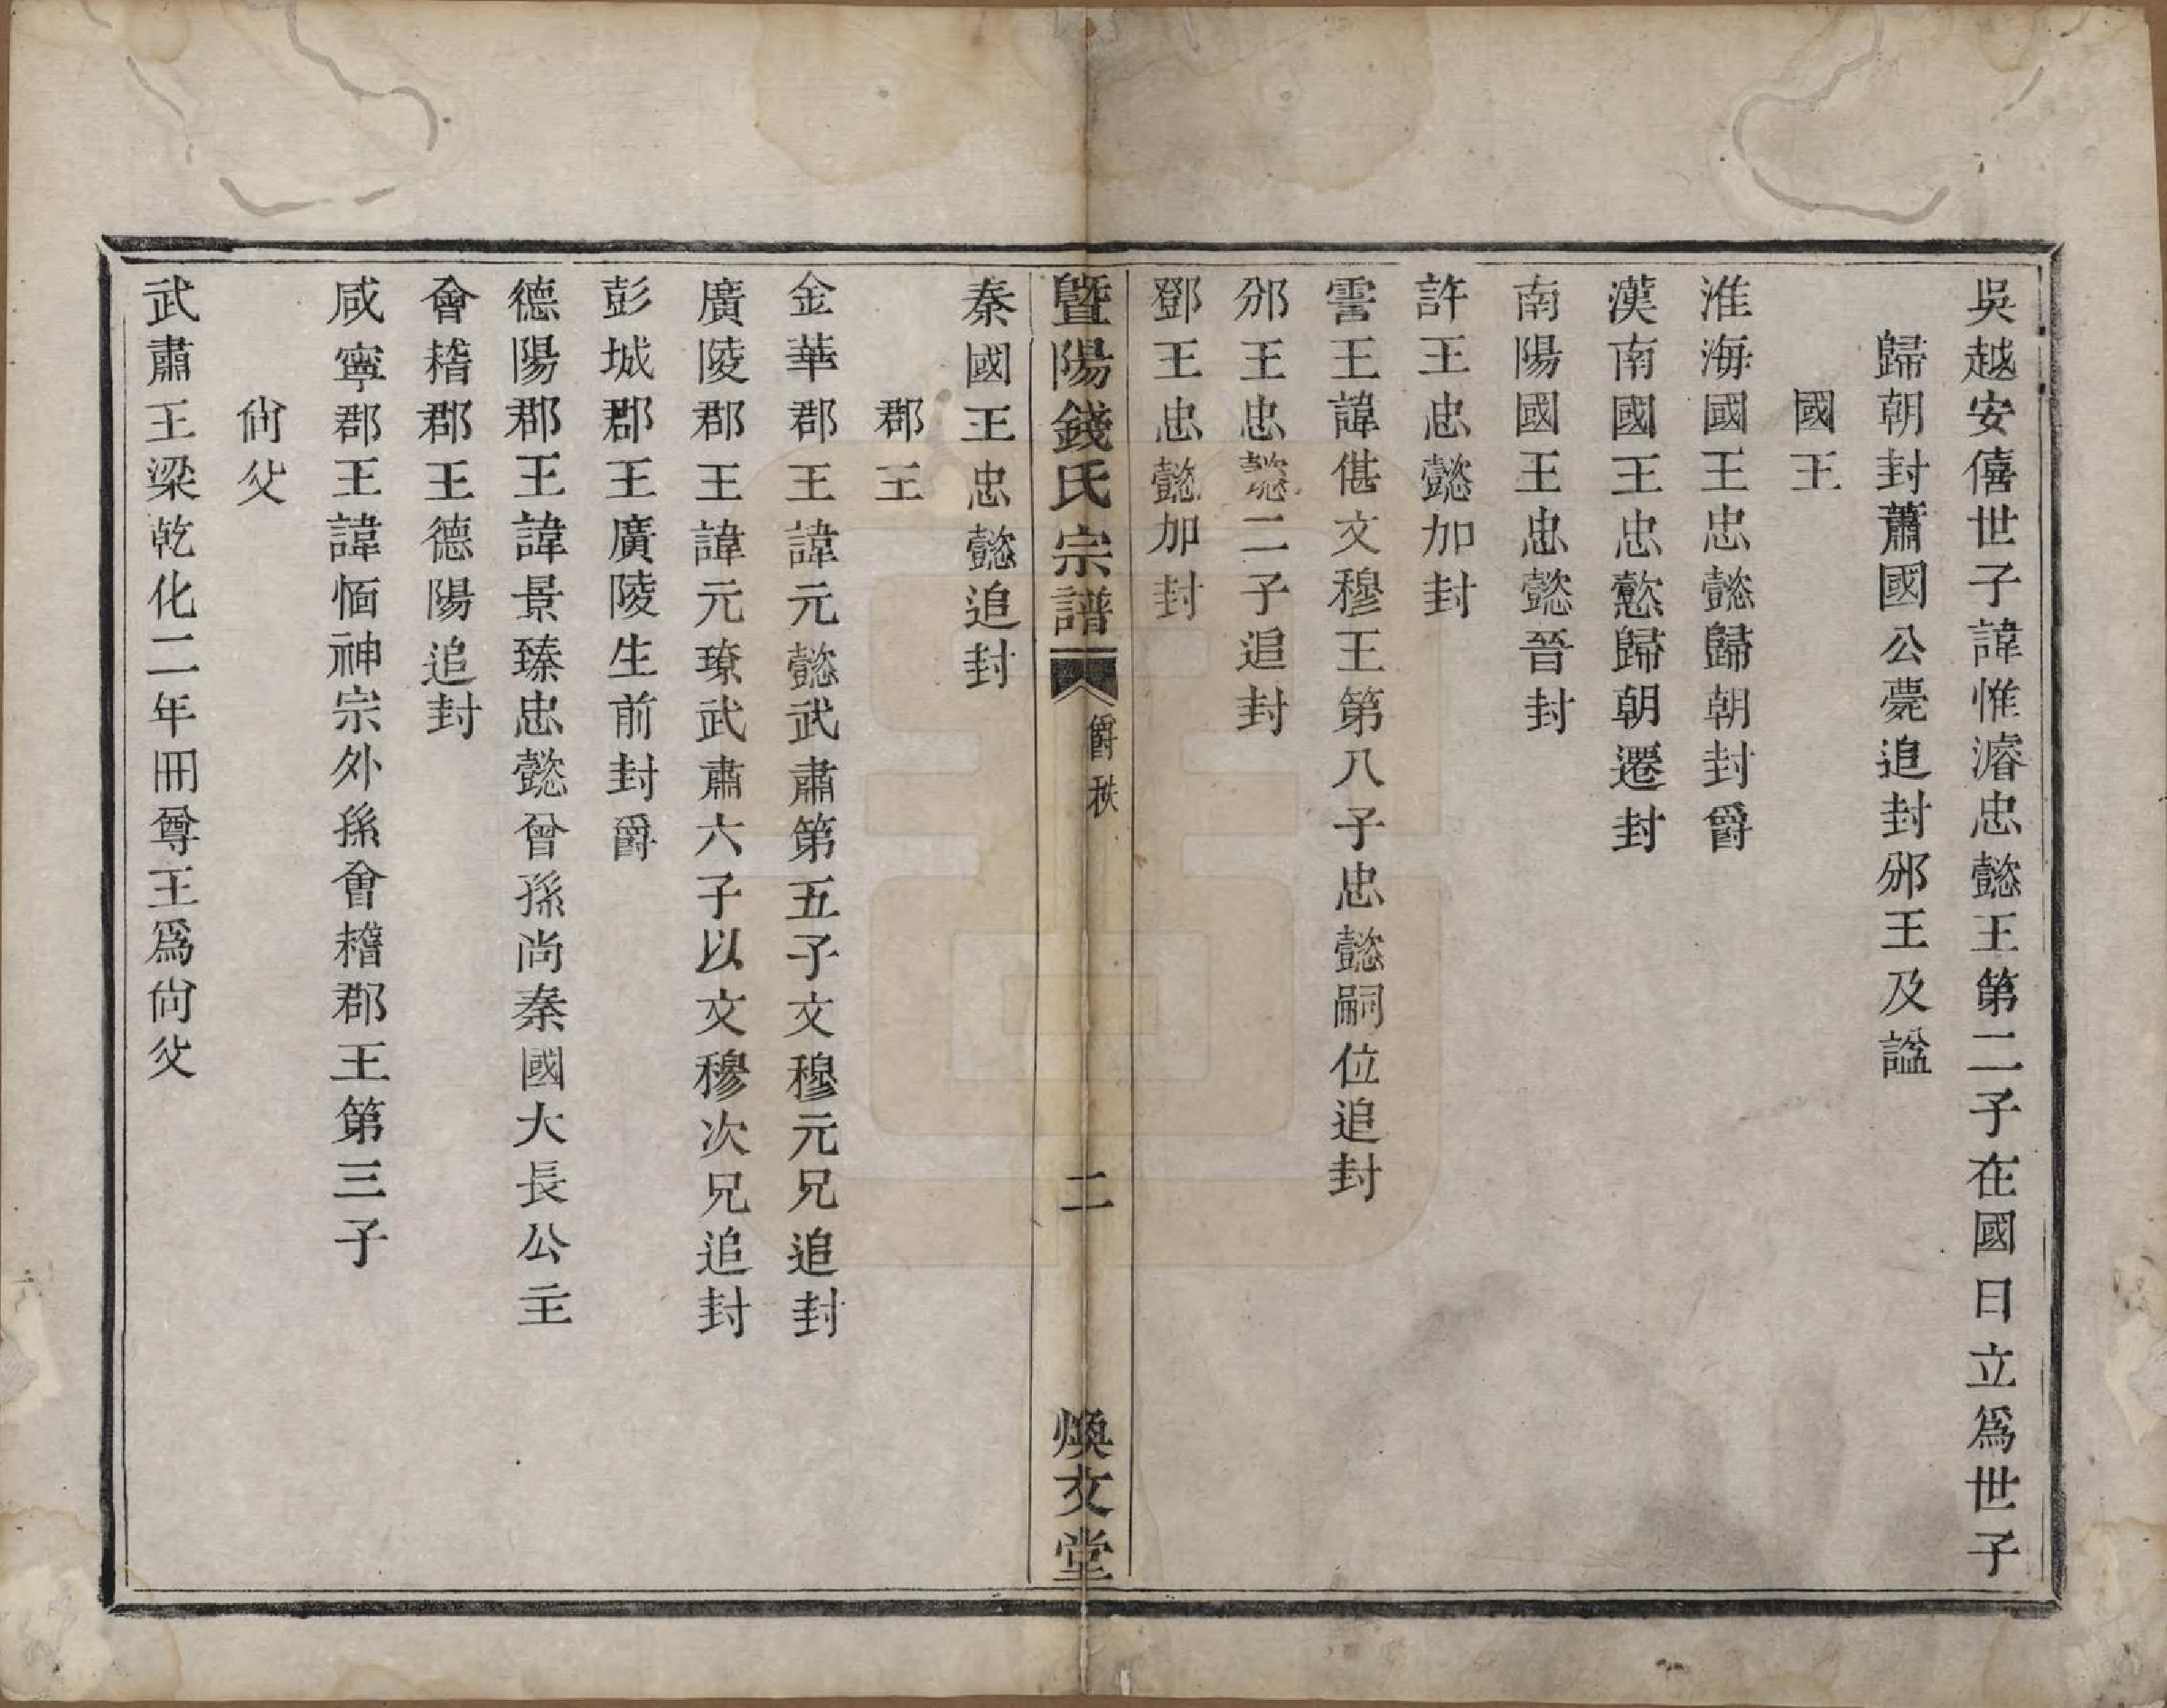 吳越安僖世子諱惟濬忠懿王第二子在國日立爲世子
歸朝封蕭國公薨追封邠王及諡
國王
淮海國王忠懿歸朝封爵
漢南國王忠懿歸朝遷封
南陽國王忠懿晉封
許王忠懿加封
霅王諱偡文穆王第八子忠懿嗣位追封
邠王忠懿二子追封
鄧王忠懿加封
暨陽錢氏宗譜
爵秩
二
煥文堂
秦國王忠懿追封
郡王
金華郡王諱元懿武肅第五子文穆元兄追封
廣陵郡王諱元璙武肅六子以文穆次兄追封
彭城郡王廣陵生前封爵
德陽郡王諱景臻忠懿曾孫尚秦國大長公主
會稽郡王德陽追封
咸寧郡王諱愐神宗外孫會稽郡王第三子
尙父
武肅王梁乾化二年冊尊王爲尙父